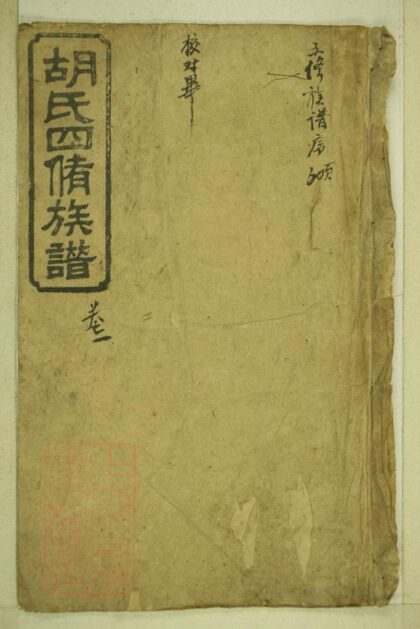 胡氏四脩族譜
卷一
校对畢
修族谱序